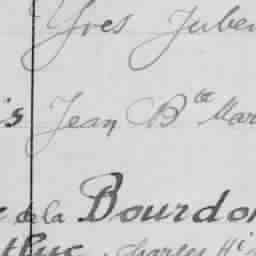 Yves Juber
is Jean B^te Mar
e de la Bourdon
Charles